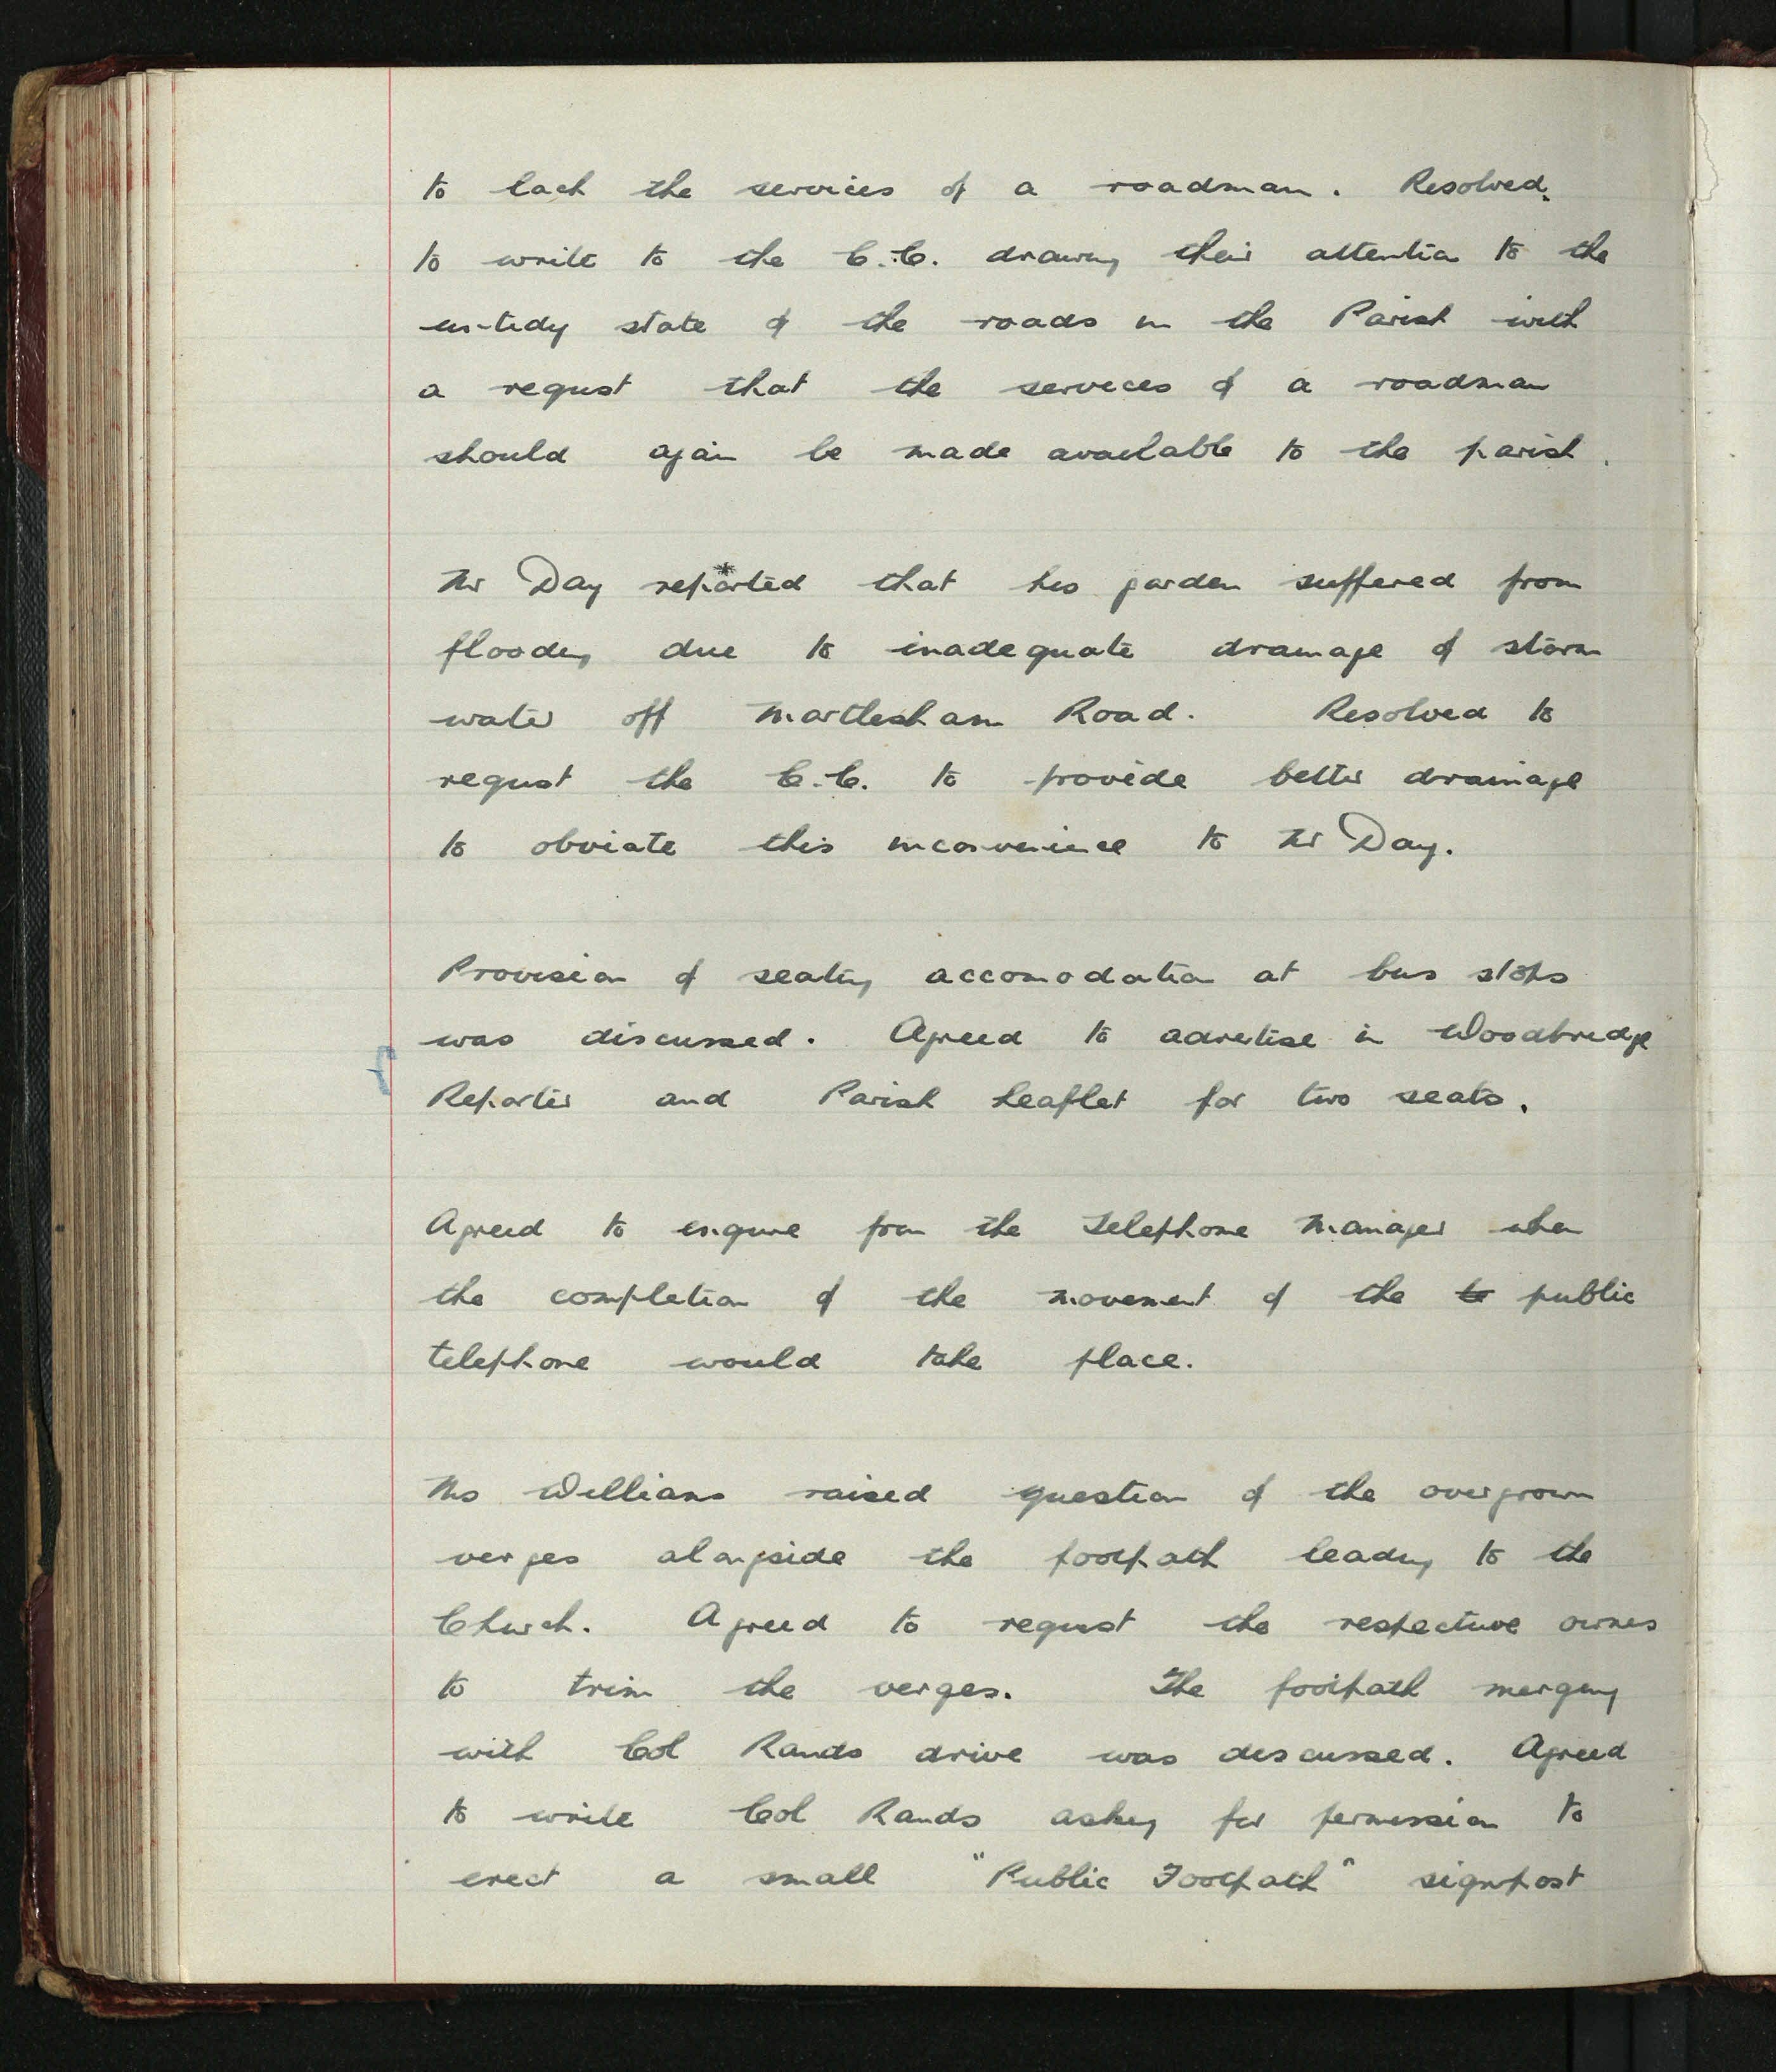 to lack the services of a roadman. Resolved
to write to the C.C. drawing their attention to the
un-tidy state of the roads in the Parish with
a request that the services of a roadman
should again be made available to the parish.
Mr Day reported that his garden suffered from
flooding due to inadequate drainage of storm
water off Martlesham Road. Resolved to
request the C.C. to provide better drainage
to obviate this inconvenience to Mr Day.
Provision of seating accomodation at bus stops
was discussed. Agreed to advertise in Woodbridge
Reporter and Parish Leaflet for two seats.
Agreed to enquire from the Telephone Manager when
the completion of the movement of the te public
telephone would take place.
Mrs Williams raised question of the overgrown
verges alongside the footpath leading to the
Church. Agreed to request the respective owners
to trim the verges. The footpath merging
with Col Rands drive was discussed. Agreed
to write Col Rands asking for permission to
erect a small "Public Footpath" signpost